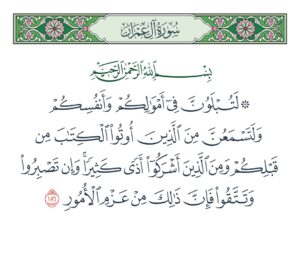 سُورَةُ آلِ عِمۡرَانَ
بِسۡمِ ٱللَّهِ ٱلرَّحۡمَٰنِ ٱلرَّحِيمِ
۞ لَتُبۡلَوُنَّ فِيٓ أَمۡوَٰلِكُمۡ وَأَنفُسِكُمۡ
وَلَتَسۡمَعُنَّ مِنَ ٱلَّذِينَ أُوتُواْ ٱلۡكِتَٰبَ مِن
قَبۡلِكُمۡ وَمِنَ ٱلَّذِينَ أَشۡرَكُوٓاْ أَذٗى كَثِيرٗاۚ وَإِن تَصۡبِرُواْ
وَتَتَّقُواْ فَإِنَّ ذَٰلِكَ مِنۡ عَزۡمِ ٱلۡأُمُورِ ١٨٦